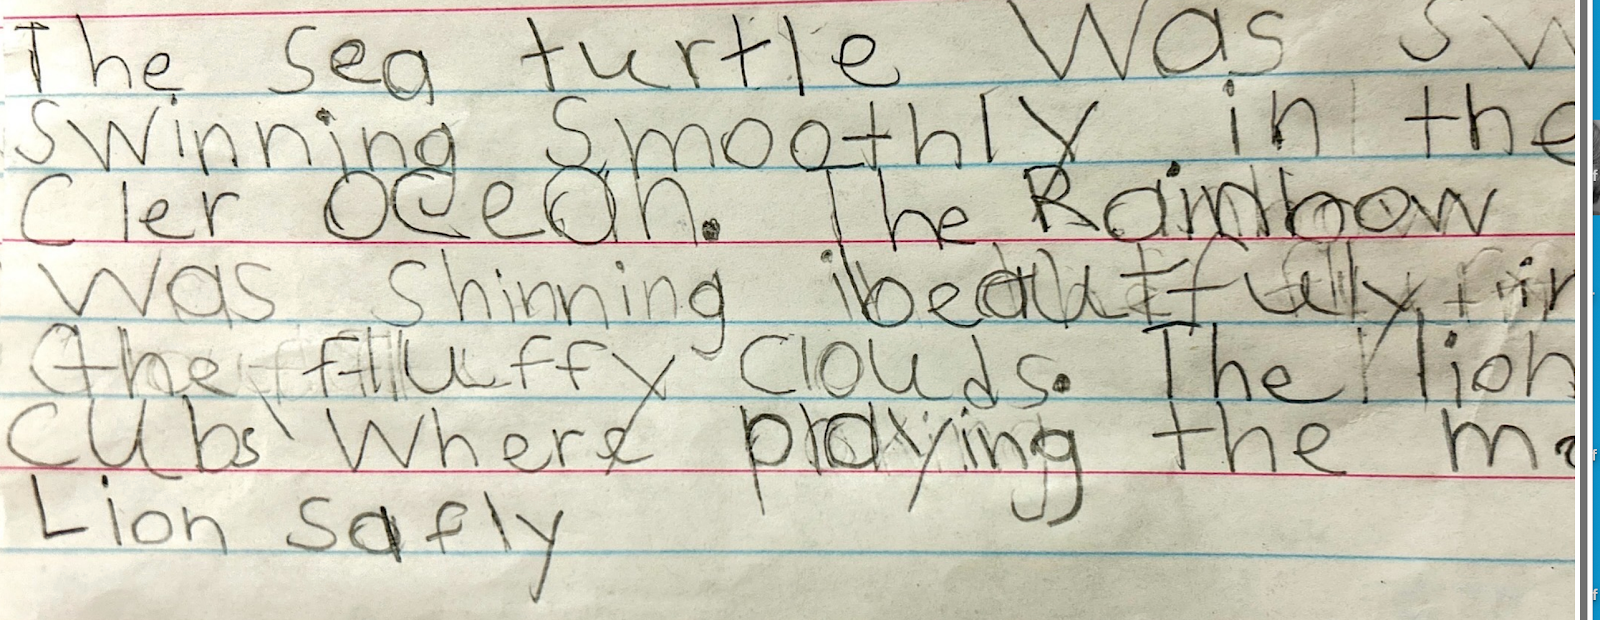 The sea turtle Was sw
Swinning Smoothly in the
Cler ocean. The Rainbow
Was Shinning beautifully in
the fluffy Clouds. The lion
Cubs Where playing the
Lion Safly